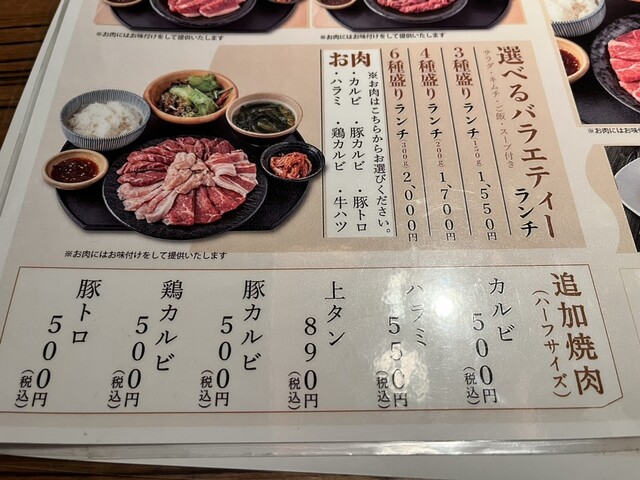 ※お肉にはお味付けをして提供いたします
※お肉にはお味
※お肉にはお味
選べるバラエティー
ランチ
サラダ・キムチ・ご飯・スープ付き
3種盛りランチ(150g) 1,550円
4種盛りランチ(200g) 1,700円
6種盛りランチ(300g) 2,000円
お肉
※お肉はこちらからお選びください。
・カルビ ・豚カルビ ・豚トロ
・ハラミ ・鶏カルビ ・牛ハツ
※お肉にはお味付けをして提供いたします
追加焼肉
(ハーフサイズ)
カルビ 500円(税込)
ハラミ 550円(税込)
上タン 890円(税込)
豚カルビ 500円(税込)
鶏カルビ 500円(税込)
豚トロ 500円(税込)